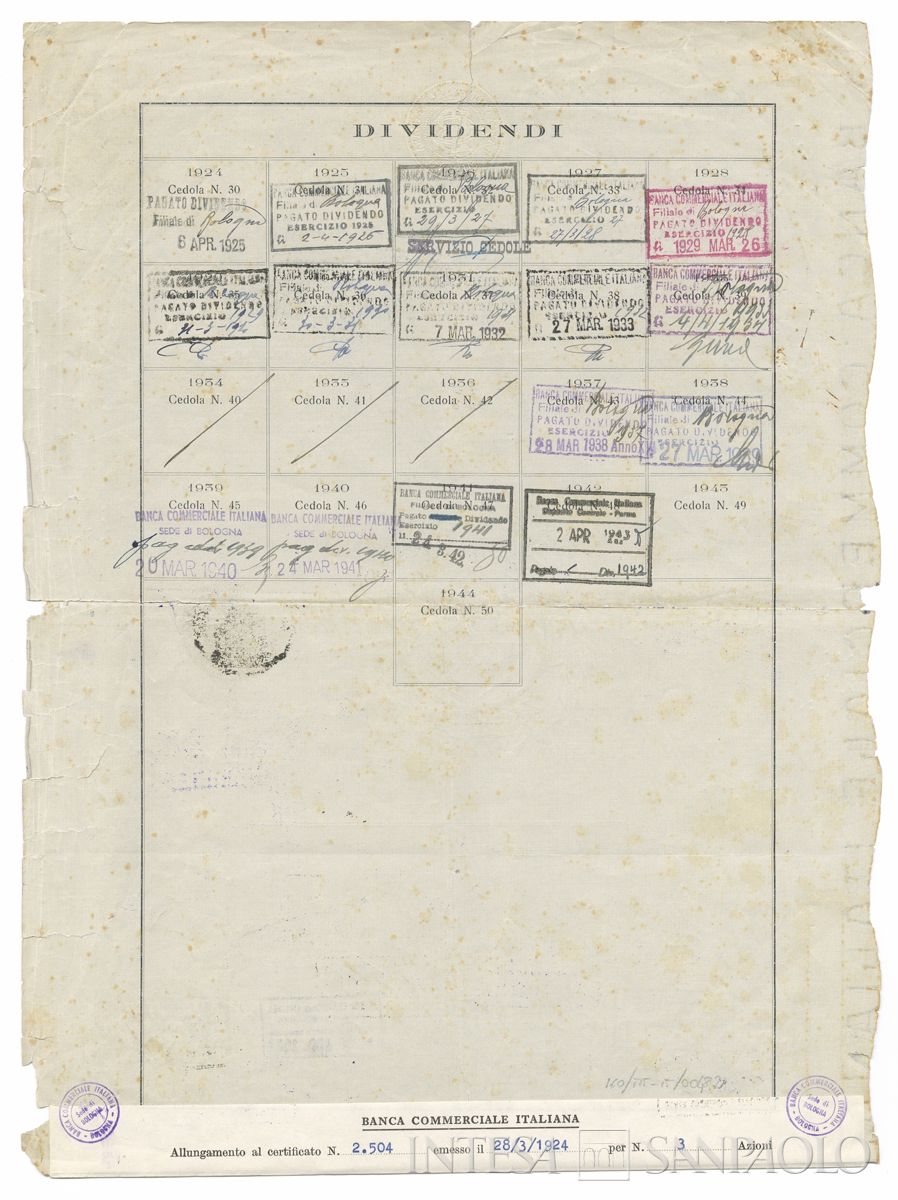 DIVIDENDI
1924
Cedola N. 30
PAGATO DIVIDENDO
Filiale di Bologna
6 APR. 1925
1925
Cedola N. 31
BANCA COMMERCIALE ITALIANA
Filiale di Bologna
PAGATO DIVIDENDO
ESERCIZIO 1925
li 2-4-1926
1926
Cedola
BANCA COMMERCIALE ITALIANA
Filiale di Bologna
PAGATO DIVIDENDO
ESERCIZIO
li 29/3/27
SERVIZIO CEDOLE
1927
Cedola N. 33
BANCA COMMERCIALE ITALIANA
Bologna
PAGATO DIVIDENDO
ESERCIZIO 27
li 27/3/28
1928
Cedola N. 34
BANCA COMMERCIALE ITALIANA
Filiale di Bologna
PAGATO DIVIDENDO
ESERCIZIO 1928
li 1929 MAR. 26
BANCA COMMERCIALE ITALIANA
Cedola N. 35
Bologna
PAGATO DIVIDENDO
ESERCIZIO 1929
BANCA COMMERCIALE ITALIANA
Cedola N. 36
Bologna
PAGATO DIVIDENDO
ESERCIZIO 1930
1931
BANCA COMMERCIALE ITALIANA
Cedola N. 37
PAGATO DIVIDENDO
ESERCIZIO 1931
li 7 MAR. 1932
BANCA COMMERCIALE ITALIANA
Cedola N. 38
PAGATO DIVIDENDO
ESERCIZIO 1932
li 27 MAR. 1933
BANCA COMMERCIALE ITALIANA
Cedola N.
Bologna
PAGATO DIVIDENDO
ESERCIZIO
li 4/4/1934
1934
Cedola N. 40
1935
Cedola N. 41
1936
Cedola N. 42
1937
Cedola N. 43
BANCA COMMERCIALE ITALIANA
Filiale di Bologna
PAGATO DIVIDENDO
ESERCIZIO 1937
28 MAR 1938 Anno XVI
1938
Cedola N. 44
BANCA COMMERCIALE ITALIANA
Filiale di Bologna
PAGATO DIVIDENDO
ESERCIZIO
27 MAR. 1939
1939
Cedola N. 45
BANCA COMMERCIALE ITALIANA
SEDE di BOLOGNA
20 MAR. 1940
1940
Cedola N. 46
BANCA COMMERCIALE ITALIANA
SEDE di BOLOGNA
pag div. 1940
24 MAR 1941
1941
BANCA COMMERCIALE ITALIANA
Pagato Dividendo
Esercizio 1941
li 24.3.42
1942
Banca Commerciale Italiana
Parma
2 APR 1943
Pagato Div. 1942
1943
Cedola N. 49
1944
Cedola N. 50
BANCA COMMERCIALE ITALIANA
Sede di
BOLOGNA
BOLOGNA
BANCA COMMERCIALE ITALIANA
Sede di
BOLOGNA
BOLOGNA
BANCA COMMERCIALE ITALIANA
Allungamento al certificato N. 2.504 emesso il 28/3/1924 per N. 3 Azioni
INTESA SANPAOLO